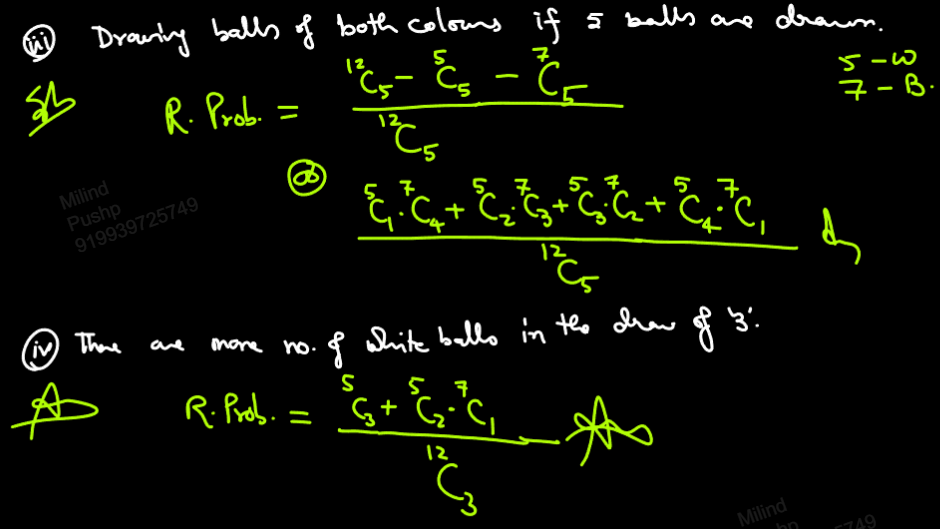 (iii) Drawing balls of both colours if 5 balls are drawn.
5 - W
7 - B.
Sol
R. Prob. = (¹²C₅ - ⁵C₅ - ⁷C₅) / ¹²C₅
Or
(⁵C₁.⁷C₄ + ⁵C₂.⁷C₃ + ⁵C₃.⁷C₂ + ⁵C₄.⁷C₁) / ¹²C₅
Milind
Pushp
919939725749
(iv) There are more no. of white balls in the draw of '3'.
R. Prob. = (⁵C₃ + ⁵C₂.⁷C₁) / ¹²C₃
Milind